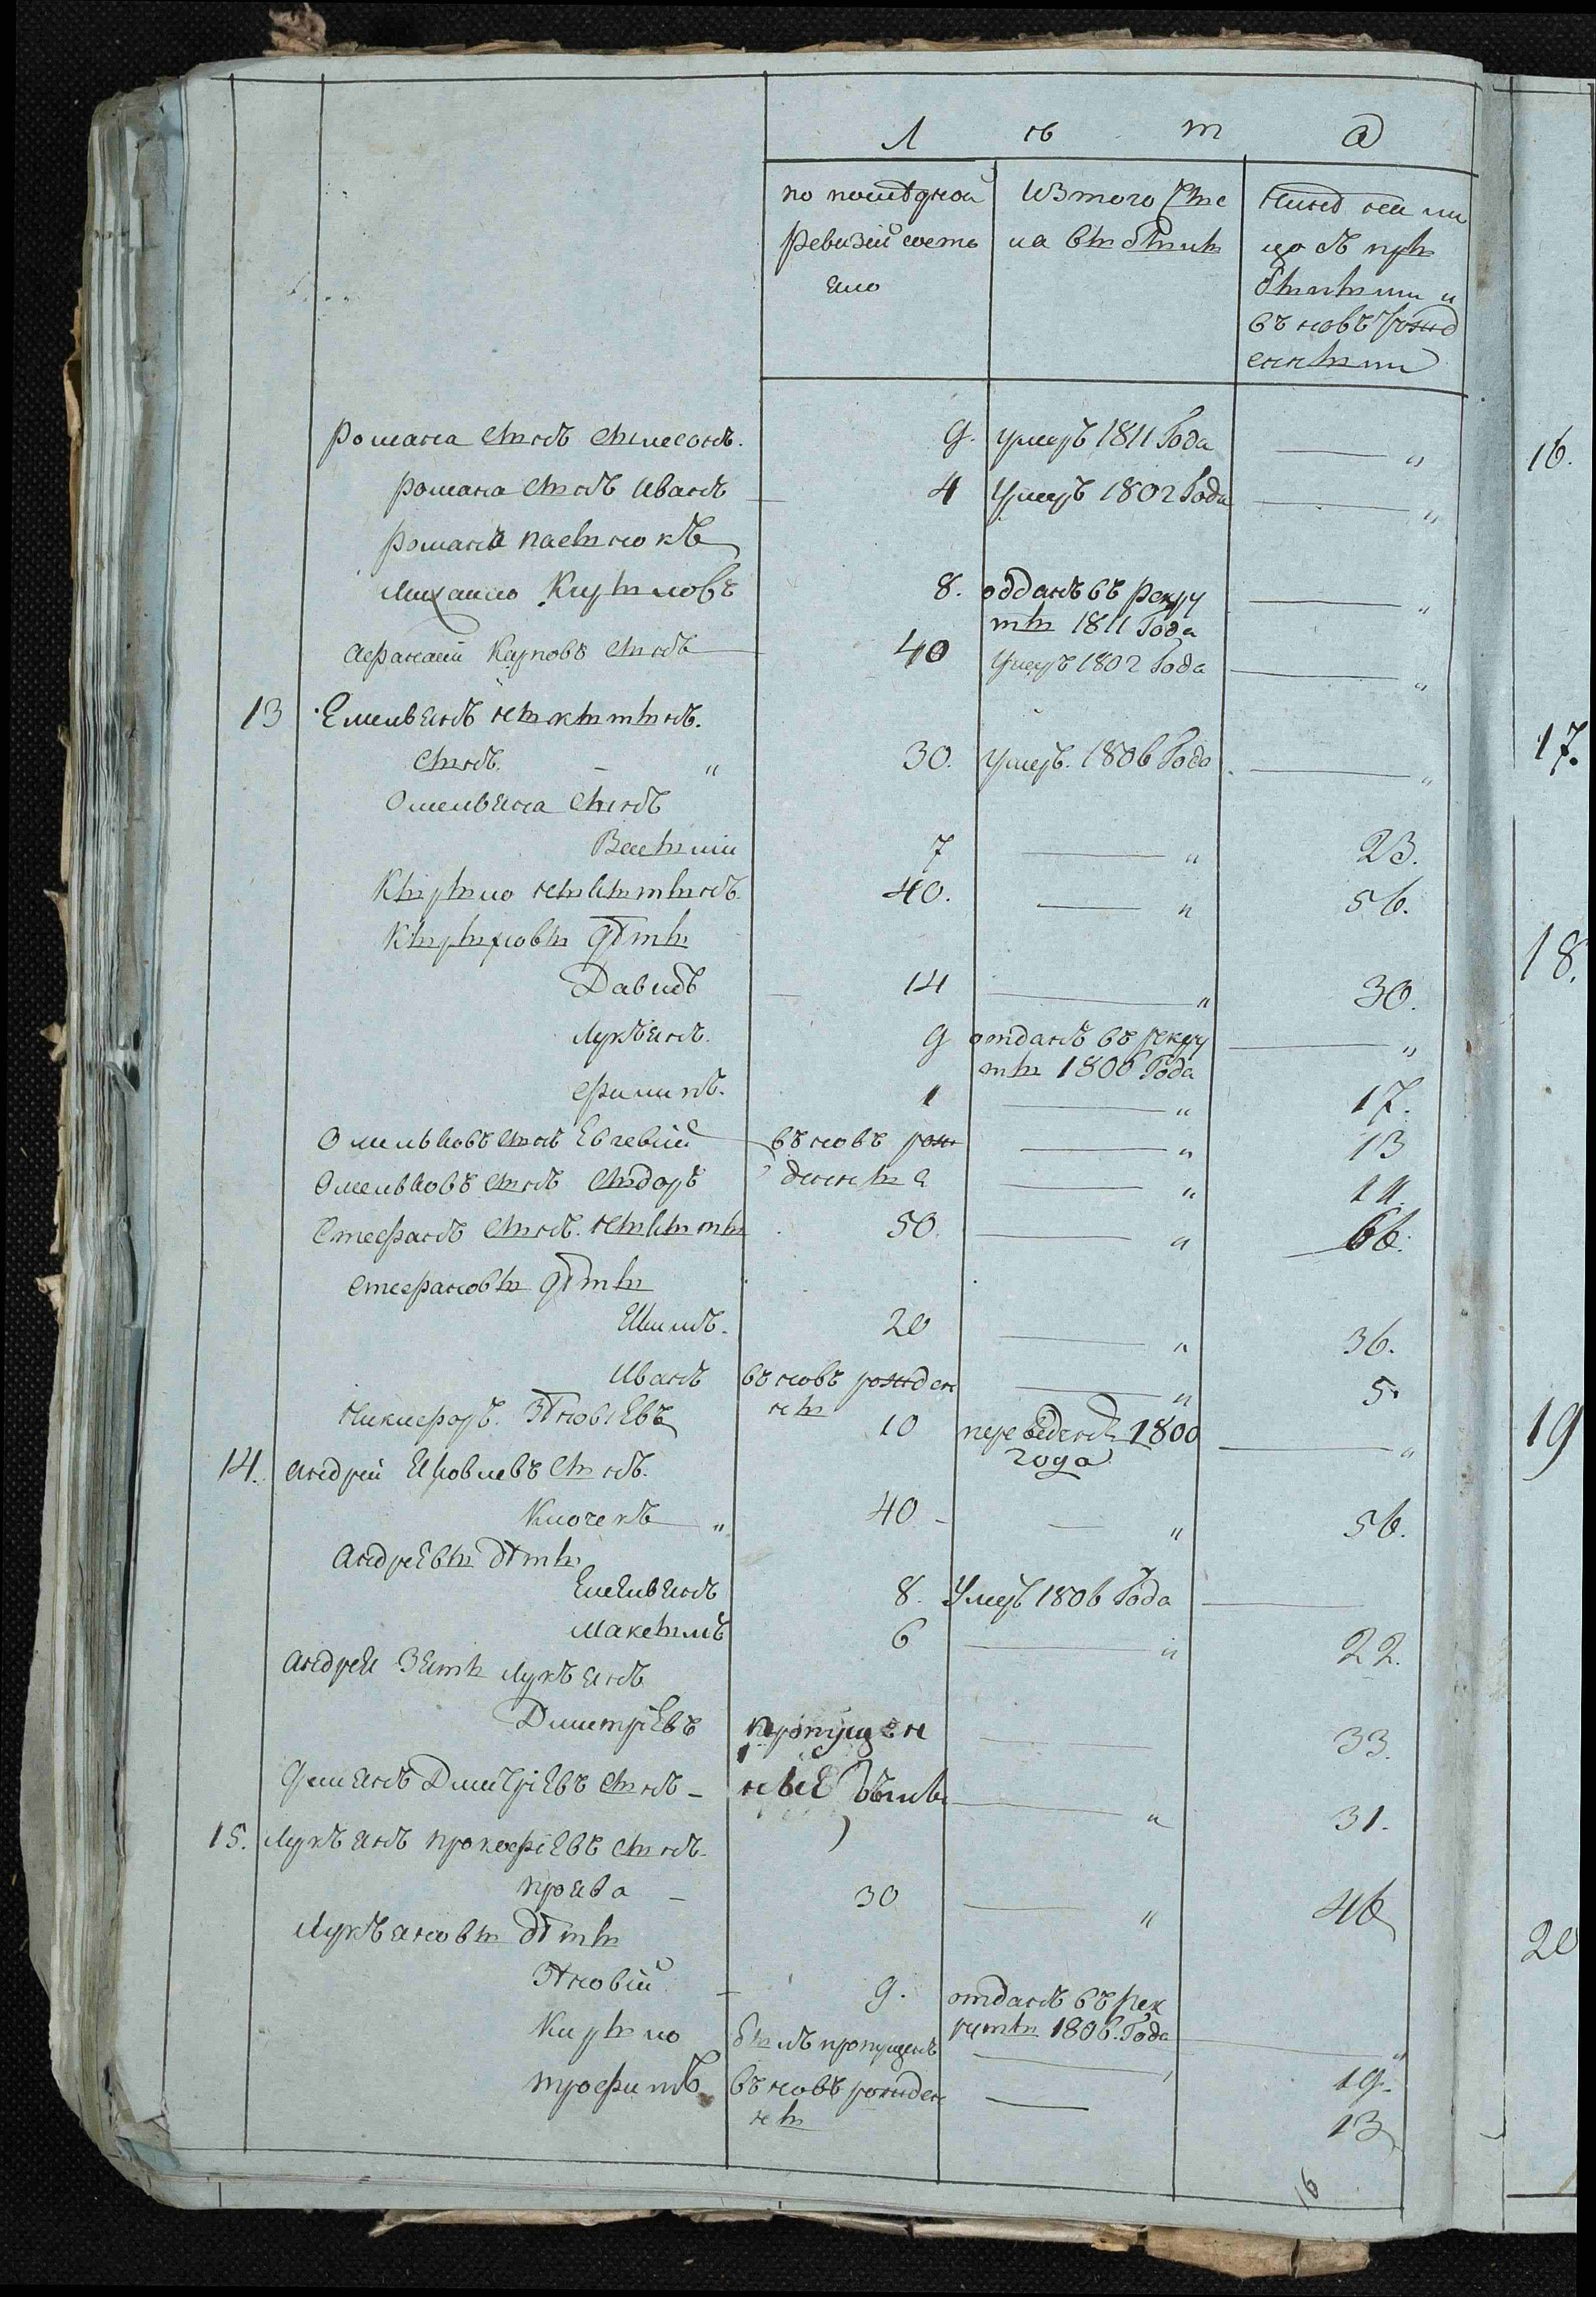 Л ѣ т а
по последной
ревизіи состо
яло
Изтого Чис
ла выбыли
ныне на ли
цо съ при
былыми и
въ новь рожд
енными
Романа сынъ Симеонъ. 9. умеръ 1811 Года — "
Романа сынъ Иванъ 4 Умеръ 1802 Года — "
Романа пасынокъ
Михайло Кирыловъ 8. отданъ въ рекру
ты 1811 Года — "
Афанасій Карповъ сынъ 40 Умеръ 1802 Года — "
13 Емельянъ Никитинъ.
сынъ. " 30. умеръ. 1806 Года — "
Омельяна сынъ
Василій 7 — " 23.
Кирило Никитинъ. 40. — " 56.
Кириловы дѣти
Давидъ 14 — " 30.
Лукъянъ. 9 отданъ въ рекру
ты 1806 Года — "
Филипъ. 1 — " 17.
Омельковъ сынъ Евсевій въ новь рож — " 13
Омельковъ сынъ Сидоръ денныя — " 11.
Стефанъ сынъ. Никиты 50 — " 66.
Стефановы дѣти
Якимъ. 20 — " 36.
Иванъ въ новь рожден
ны — " 5.
Никифоръ. Зѣновіевъ 10 переведенъ 1800
года — "
14. Андрей Яковлевъ сынъ.
Клочекъ " 40 — " 56.
Андреевы дѣти
Емельянъ 8. Умеръ 1806 Года —
Максимъ 6 — " 22.
Андрея Зять Лукъянъ
Дмитріевъ пропущен — 33.
Демянъ Дмитріевъ сынъ — ныѣ были — " 31.
15. Лукъянъ Прокофіевъ сынъ.
Проява — 30 — " 46
Лукъяновы дѣти
Зѣновій — 9. отданъ въ рек
руты 1806. Года — "
Кирыло былъ пропущенъ — 19.
Трофимъ въ новь рожден
ны — 13
16
16.
17.
18.
19
20